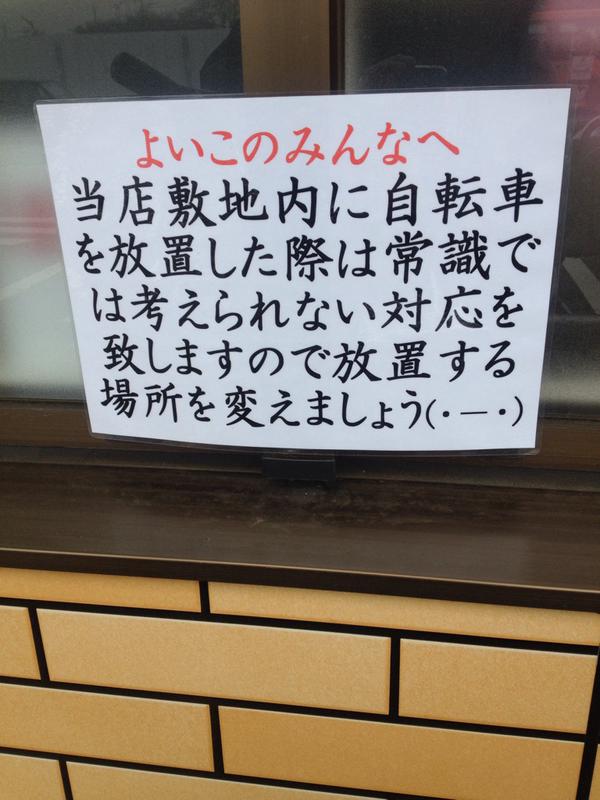 よいこのみんなへ
当店敷地内に自転車
を放置した際は常識で
は考えられない対応を
致しますので放置する
場所を変えましょう(・ー・)